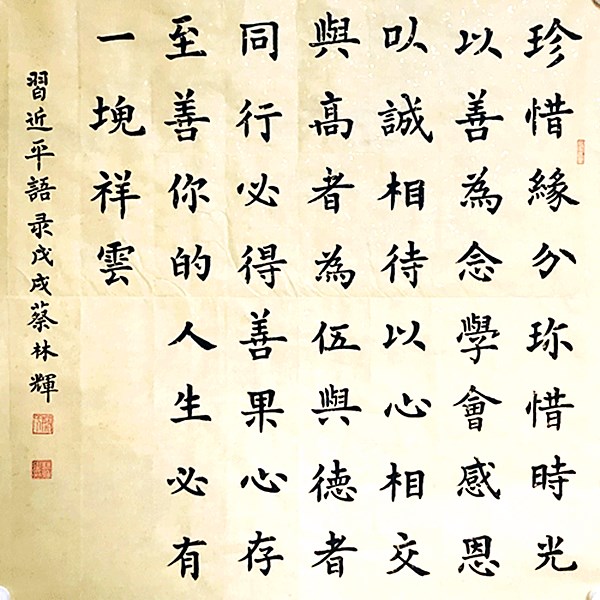 珍惜緣分珎惜時光
以善為念學會感恩
㕥誠相待以心相交
與高者為伍與德者
同行必得善果心存
至善你的人生必有
一塊祥雲
習近平語录戊戌蔡林輝